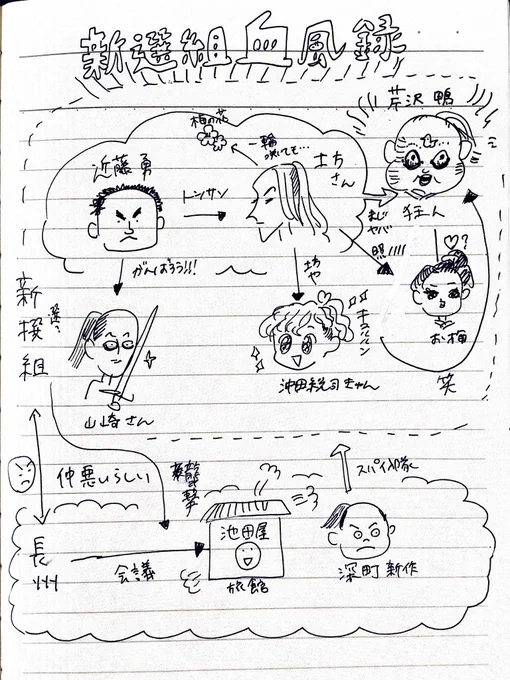 新選組血風録
芹沢 鴨
梅の花
一輪
咲いても…
近藤 勇
土方
さん
トシサン
狂人
まじ
ヤバ
照!!!!
♡?
がんばろう!!!
坊や
キュンキュン
お梅
新撰組
選?
山崎さん
沖田総司きゅん
笑
スパイ入隊
仲悪いらしい
襲撃
池田屋
長州
会議
旅館
深町 新作